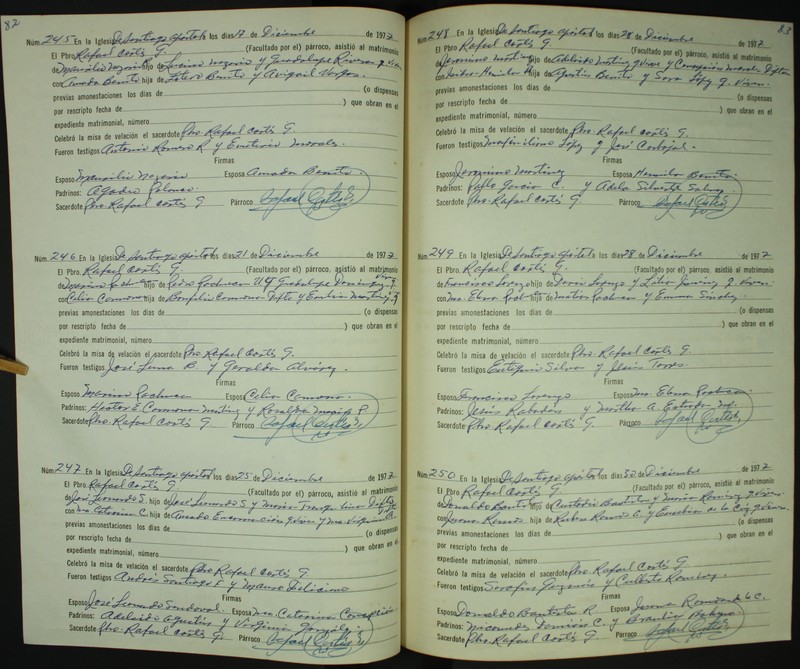 82
Núm. 245 En la Iglesia De Santiago Apóstol los días 17 de Diciembre de 1972
El Pbro. Rafael Cortés G. (Facultado por el) párroco, asistió al matrimonio
de hijo de y Guadalupe Rivera q. Viven
con Amada Benito hija de Benito y Abigail
previas amonestaciones los días de (o dispensas
por rescripto fecha de ) que obran en el
expediente matrimonial, número
Celebró la misa de velación el sacerdote Pbro. Rafael Cortés G.
Fueron testigos Antonio Romero R y Emeterio Morales.
Firmas
Esposo Esposa Amada Benito.
Padrinos:
Sacerdote Pbro. Rafael Cortés G Párroco Rafael Cortés G.
Núm. 246 En la Iglesia De Santiago Apóstol los días 21 de Diciembre de 1972
El Pbro. Rafael Cortés G. (Facultado por el) párroco, asistió al matrimonio
de hijo de Guadalupe Domínguez
con Celia Carmona hija de Bonfilio Carmona
previas amonestaciones los días de (o dispensas
por rescripto fecha de ) que obran en el
expediente matrimonial, número
Celebró la misa de velación el sacerdote Pbro. Rafael Cortés G.
Fueron testigos José Luna B. y Geraldo Alvarez.
Firmas
Esposo Esposa Celia Carmona.
Padrinos: Hector E Carmona y P.
Sacerdote Pbro. Rafael Cortés G Párroco Rafael Cortés G.
Núm. 247 En la Iglesia De Santiago Apóstol los días 25 de Diciembre de 1972
El Pbro. Rafael Cortés G. (Facultado por el) párroco, asistió al matrimonio
de José S. hijo de José S y María
con Ma Caterina C. hija de Amado Encarnación y Ma
previas amonestaciones los días de (o dispensas
por rescripto fecha de ) que obran en el
expediente matrimonial, número
Celebró la misa de velación el sacerdote Pbro. Rafael Cortés G
Fueron testigos Andrés Santiago F y Feliciano
Firmas
Esposo José Sandoval. Esposa Ma Caterina Concepción
Padrinos: Adelaido Agustin y Virginia González.
Sacerdote Pbro. Rafael Cortés G Párroco Rafael Cortés G.
83
Núm. 248 En la Iglesia De Santiago Apóstol los días 28 de Diciembre de 1972
El Pbro. Rafael Cortés G. (Facultado por el) párroco, asistió al matrimonio
de Jeronimo Martinez hijo de Adelaido Martinez q Vive y Concepción Difta
con hija de Agustin Benito y Sara López q. Viven.
previas amonestaciones los días de (o dispensas
por rescripto fecha de ) que obran en el
expediente matrimonial, número
Celebró la misa de velación el sacerdote Pbro. Rafael Cortés G.
Fueron testigos Maximiliano López y José Carbajal.
Firmas
Esposo Jeronimo Martinez Esposa Benito.
Padrinos: Pablo Garcia C. y Adela
Sacerdote Pbro. Rafael Cortés G Párroco Rafael Cortés G.
Núm. 249 En la Iglesia De Santiago Apóstol los días 28 de Diciembre de 1972
El Pbro. Rafael Cortés G. (Facultado por el) párroco, asistió al matrimonio
de Francisco Lorenzo hijo de Lorenzo y q. Viven
con Ma. Elena hija de y Emma Sánchez.
previas amonestaciones los días de (o dispensas
por rescripto fecha de ) que obran en el
expediente matrimonial, número
Celebró la misa de velación el sacerdote Pbro. Rafael Cortés G.
Fueron testigos Eutiquio Silva y Jesús Torres.
Firmas
Esposo Francisco Lorenzo Esposa Ma. Elena
Padrinos: Jesús Rabadan y Martha A. Estrada
Sacerdote Pbro. Rafael Cortés G. Párroco Rafael Cortés G.
Núm. 250 En la Iglesia De Santiago Apóstol los días 30 de Diciembre de 1972
El Pbro. Rafael Cortés G. (Facultado por el) párroco, asistió al matrimonio
de Donaldo Bautista hijo de Custodio Bautista y María Ramírez q Viven
con Juana Román hija de Rubén Román A. y de la Cruz q Viven.
previas amonestaciones los días de (o dispensas
por rescripto fecha de ) que obran en el
expediente matrimonial, número
Celebró la misa de velación el sacerdote Pbro. Rafael Cortés G.
Fueron testigos Serafin y Calixto Ramirez.
Firmas
Esposo Donaldo Bautista R Esposa Juana Román de la C.
Padrinos: Nicomedes C. y Braulia
Sacerdote Pbro. Rafael Cortés G Párroco Rafael Cortés G.